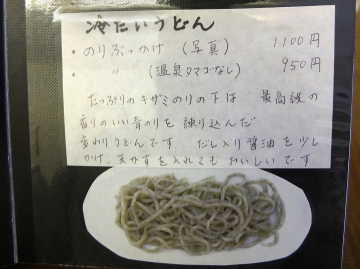 冷たいうどん
・のりぶっかけ (写真) 1100円
・ 〃 (温泉タマゴなし) 950円
たっぷりのキザミのりの下は 最高級の
香りのいい青のりを練り込んだ
変わりうどんです だし入り醤油を少し
かけ、天かすを入れてもおいしいです